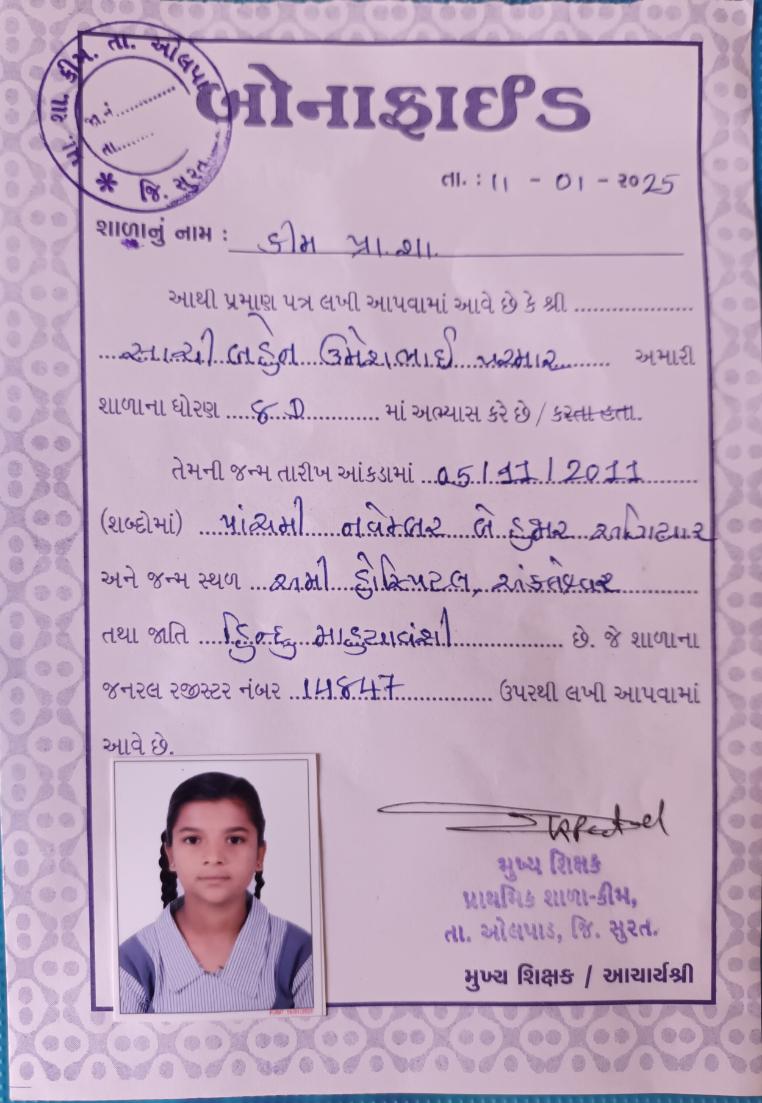 પ્રા. શા. કીમ. તા. ઓલપાડ
જા.નં..............
તા.........
* જિ. સુરત.
બોનાફાઈડ
તા. : 11 - 01 - ૨૦25
શાળાનું નામ : કીમ પ્રા.શા.
આથી પ્રમાણ પત્ર લખી આપવામાં આવે છે કે શ્રી ......................
...સાચીબહેન ઉમેશભાઈ પરમાર........ અમારી
શાળાના ધોરણ ....8.D............. માં અભ્યાસ કરે છે / કરતા હતા.
તેમની જન્મ તારીખ આંકડામાં ..05/11/2011..........
(શબ્દોમાં) ...પાંચમી નવેમ્બર બે હજાર અગિયાર
અને જન્મ સ્થળ ...અમી હોસ્પિટલ, અંકલેશ્વર..............
તથા જાતિ ...હિન્દુ માહ્યાવંશી.................... છે. જે શાળાના
જનરલ રજીસ્ટર નંબર ..14847................. ઉપરથી લખી આપવામાં
આવે છે.
KRPatel
મુખ્ય શિક્ષક
પ્રાથમિક શાળા-કીમ,
તા. ઓલપાડ, જિ. સુરત.
મુખ્ય શિક્ષક / આચાર્યશ્રી